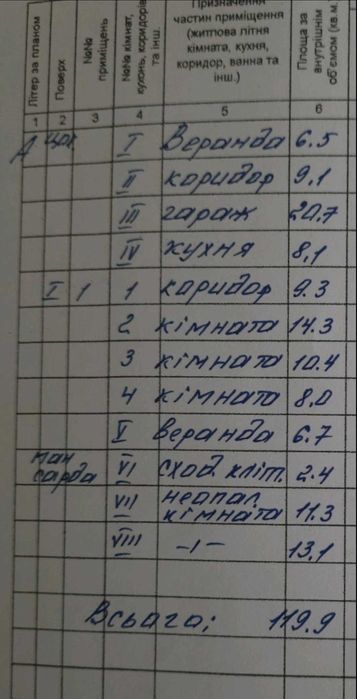 Літер за планом
Поверх
№№ приміщень
№№ кімнат, кухонь, коридорів та інш.
Призначення частин приміщення (житлова літня кімната, кухня, коридор, ванна та інш.)
Площа за внутрішнім об'ємом (кв.м
1 2 3 4 5 6
А цок. I Веранда 6.5
II коридор 9,1
III гараж 20,7
IV кухня 8,1
I 1 1 коридор 9.3
2 кімната 14.3
3 кімната 10.4
4 кімната 8,0
V веранда 6.7
ман сарда VI сход. кліт. 2.4
VII неопал. кімната 11.3
VIII -ı- 13,1
Всього: 119.9